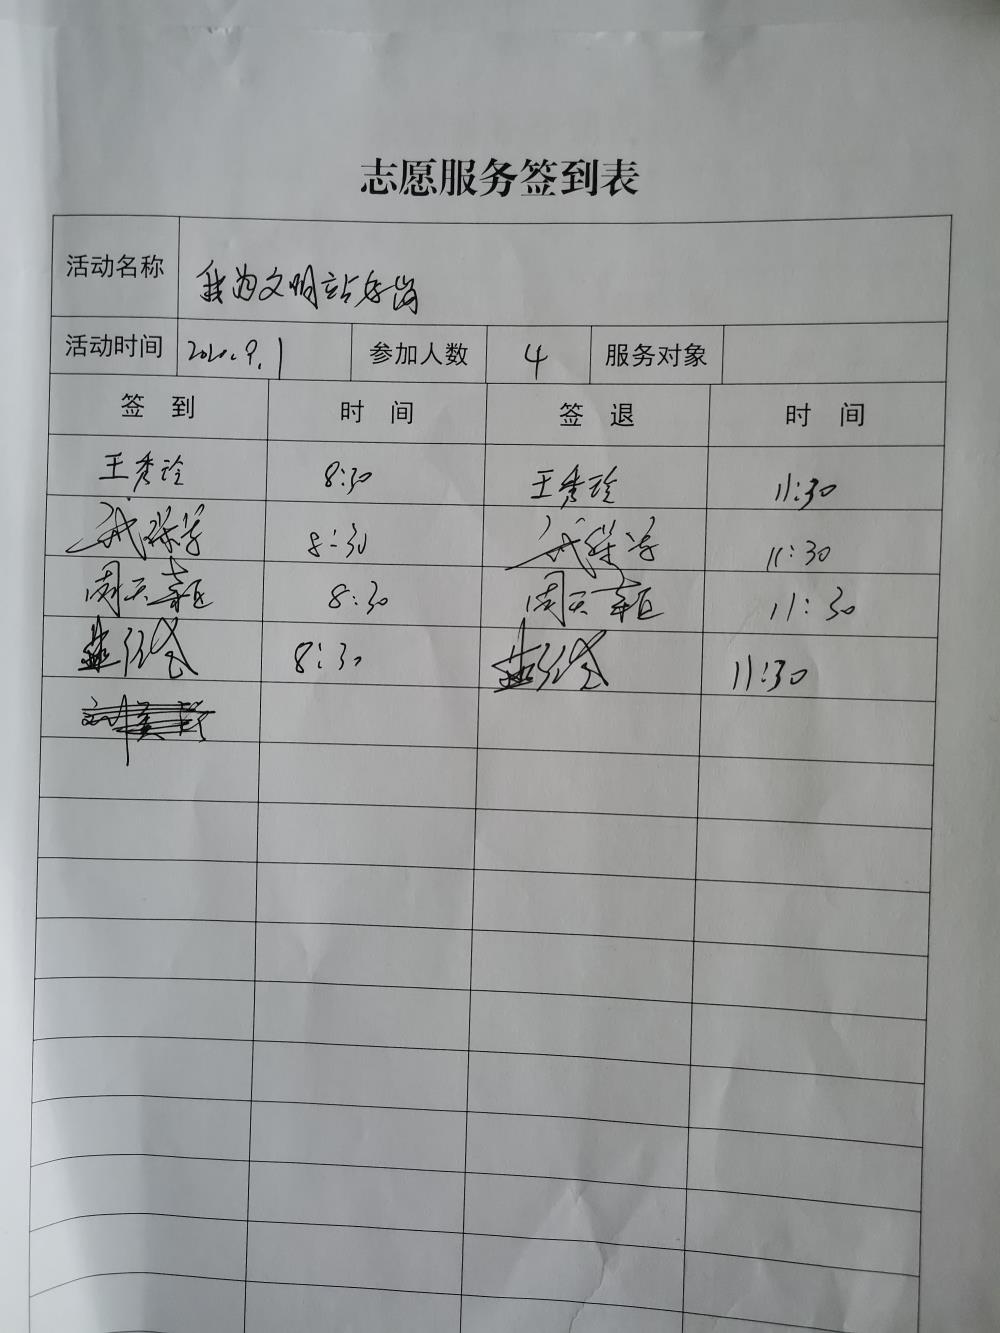 志愿服务签到表
活动名称 我为文明站好岗
活动时间 2020.9.1 参加人数 4 服务对象
签 到 时 间 签 退 时 间
王秀玲 8:30 王秀玲 11:30
8:30 11:30
周天 8:30 周天 11:30
8:30 11:30